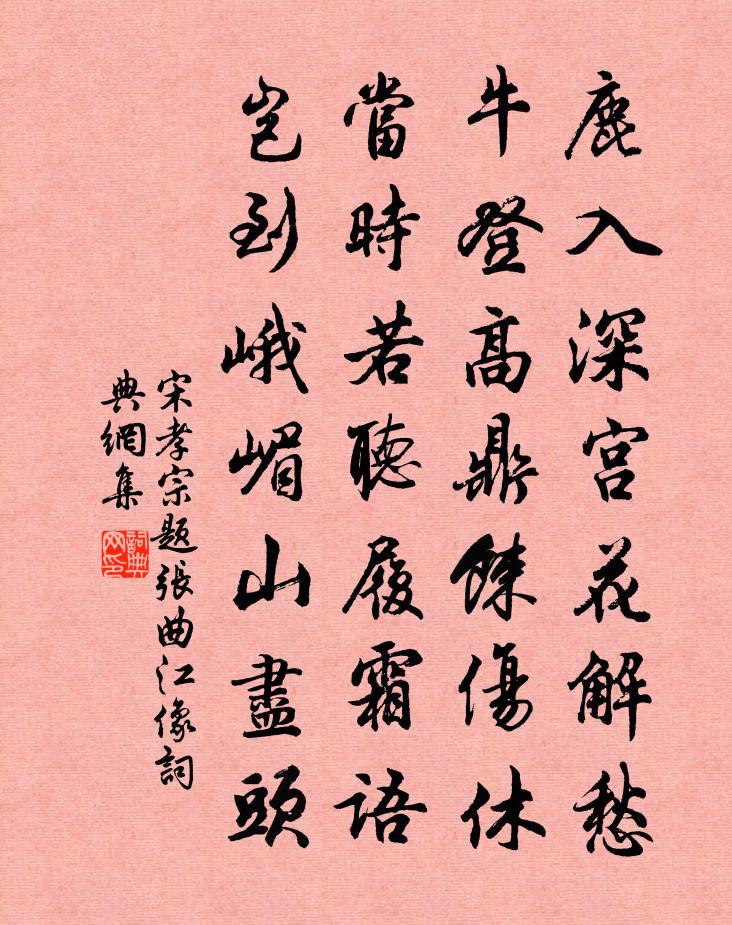 鹿入深宫花解愁
牛登高鼎餗傷休
當時若聽履霜語
豈到峨嵋山盡頭
宋孝宗題張曲江像詞
典網集
詞典
网印